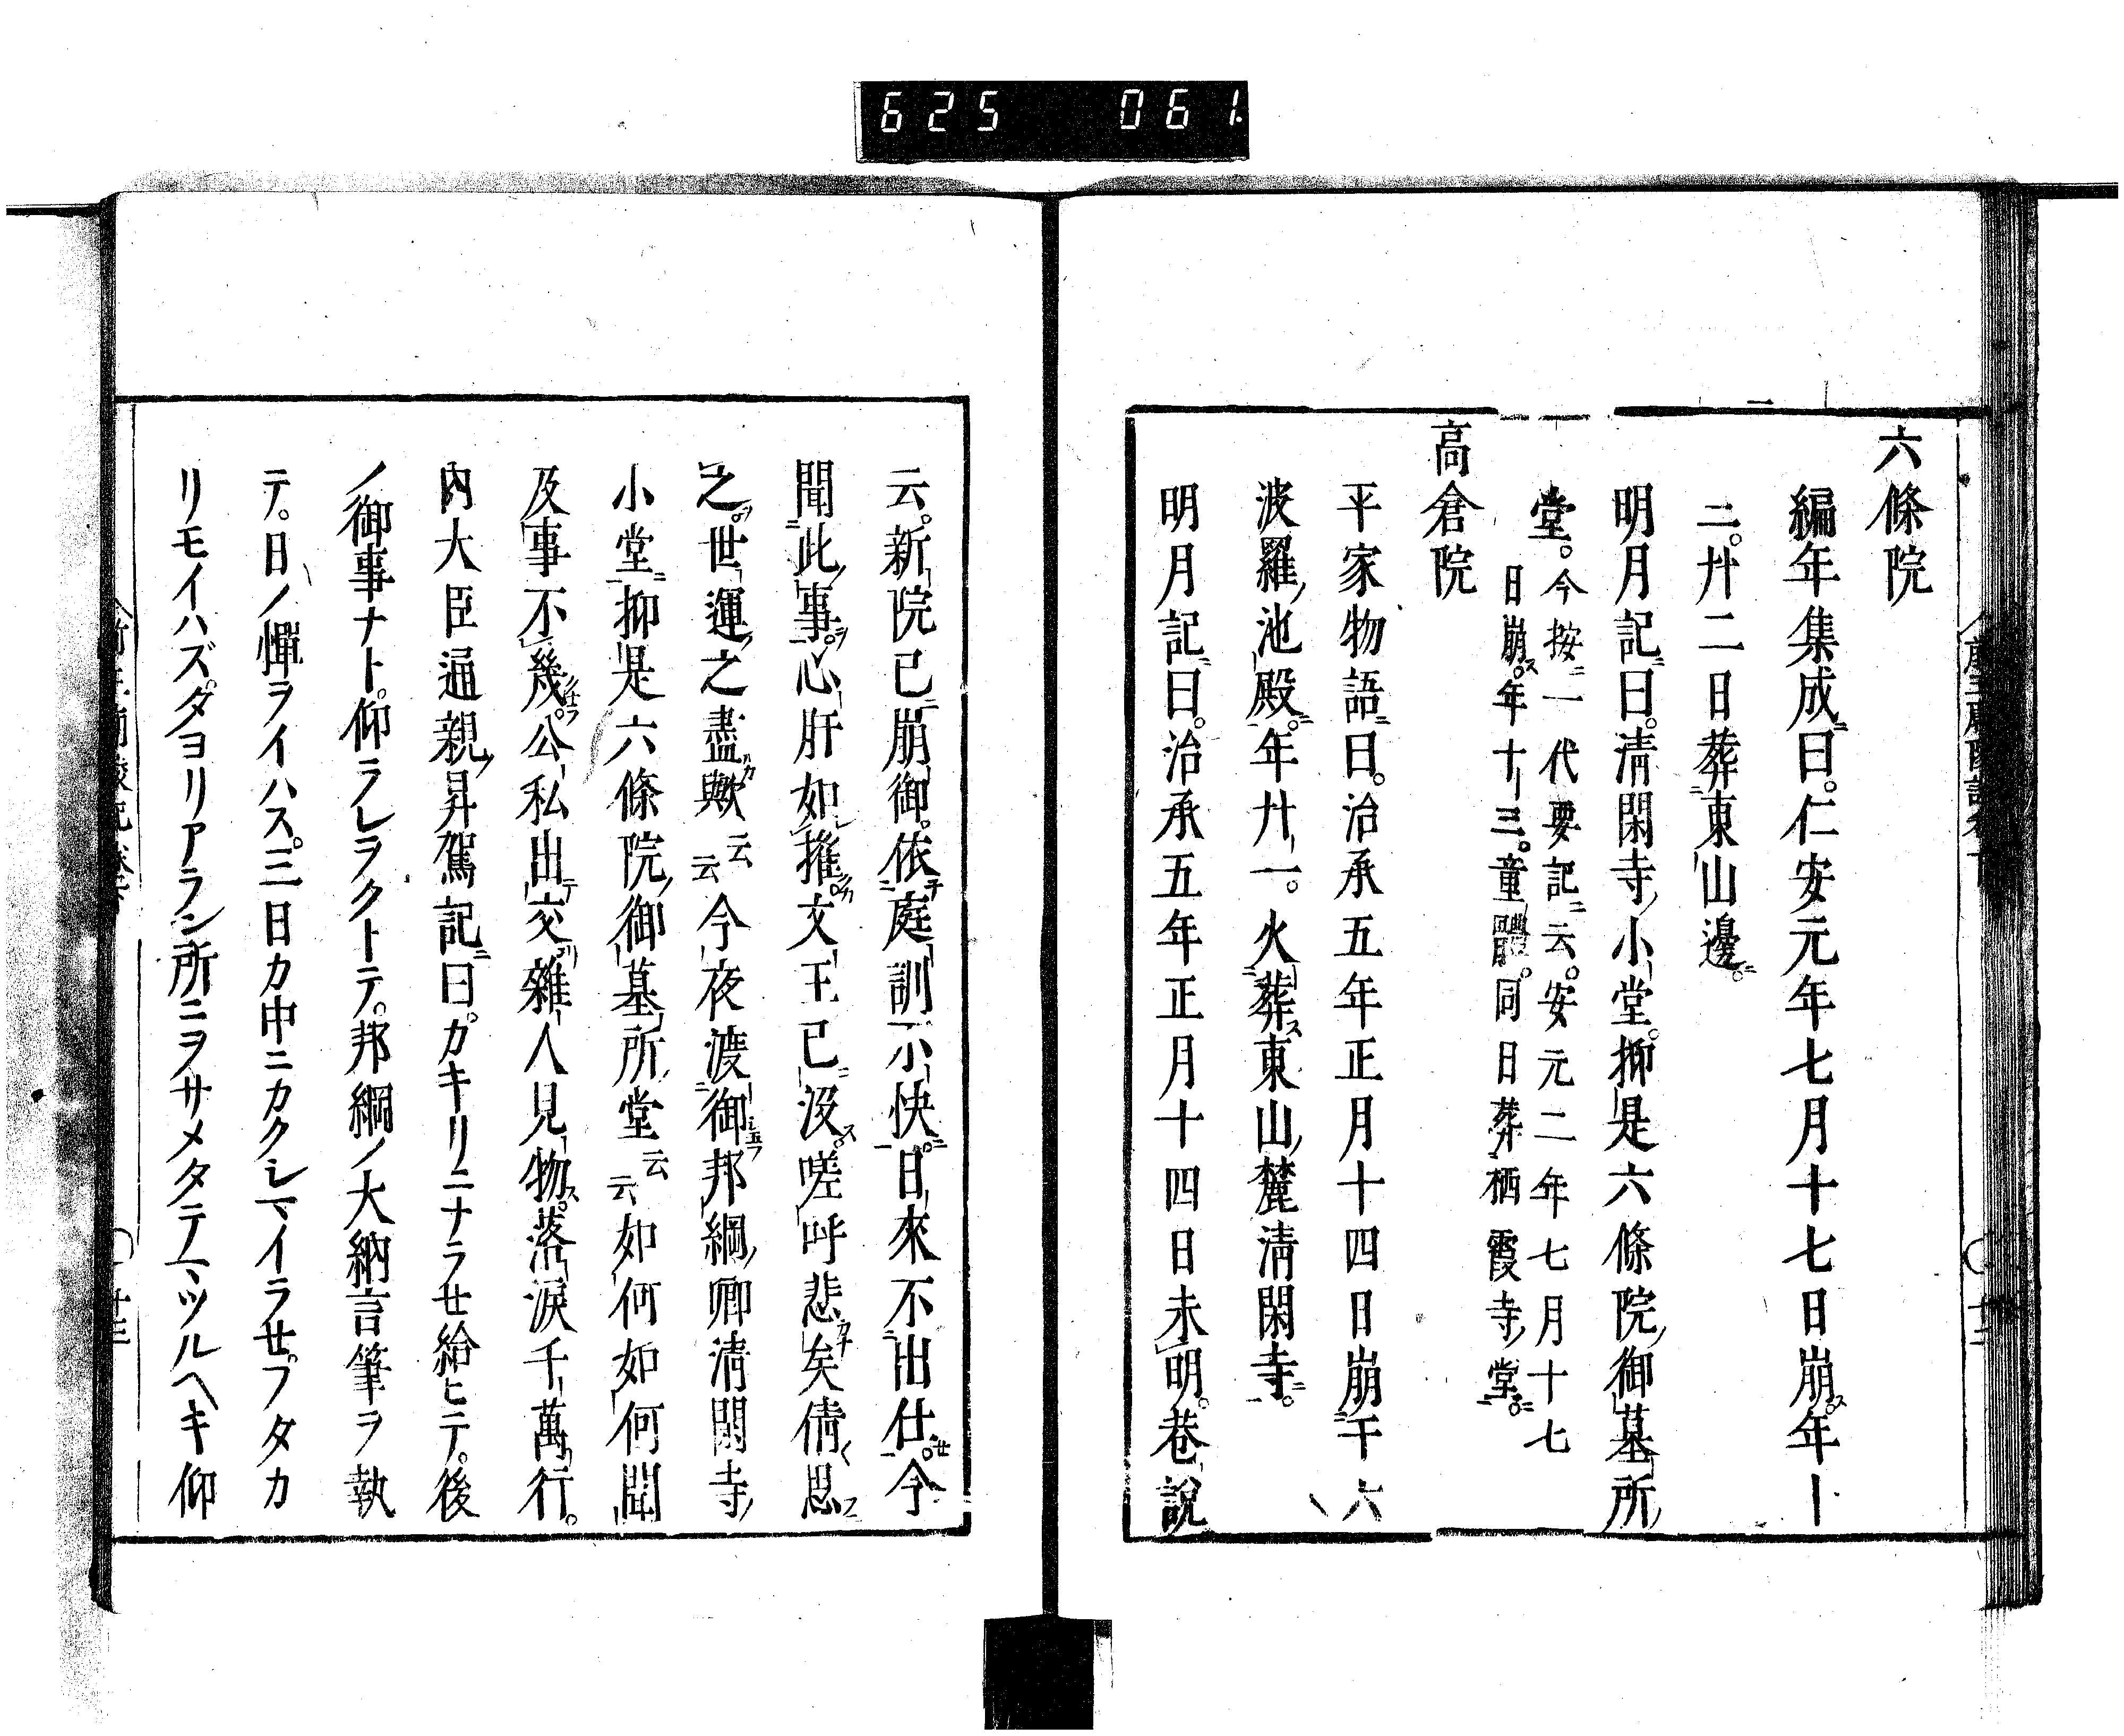 625 061
六條院
編年集成曰。仁安元年七月十七日崩。年十
二。廿二日葬東山邊。
明月記曰。淸閑寺小堂。抑是六條院御墓所
堂。今按一代要記云。安元二年七月十七
日崩。年十三。童體。同日葬栖霞寺堂。
高倉院
平家物語曰。治承五年正月十四日崩于六
波羅池殿。年廿一。火葬東山麓淸閑寺。
明月記曰。治承五年正月十四日未明。巷說
云。新院已崩御。依庭訓不快。日來不出仕。今
聞此事。心肝如摧。文王已沒。嗟呼悲矣倩思
之。世運之盡歟云云今夜渡御邦綱卿淸閑寺
小堂抑是六條院御墓所堂云云如何如何聞
及事不幾。公私出交雜人見物。落淚千萬行。
內大臣通親昇駕記曰。カキリニナラせ給ヒテ。後
ノ御事ナト。仰ラレヲクトテ。邦綱ノ大納言筆ヲ執
テ。日ノ憚ライハス。三日カ中ニカクシマイラせ。フタカ
リモイハズ。タヨリアラン所ニヲサメタテマツルヘキ仰